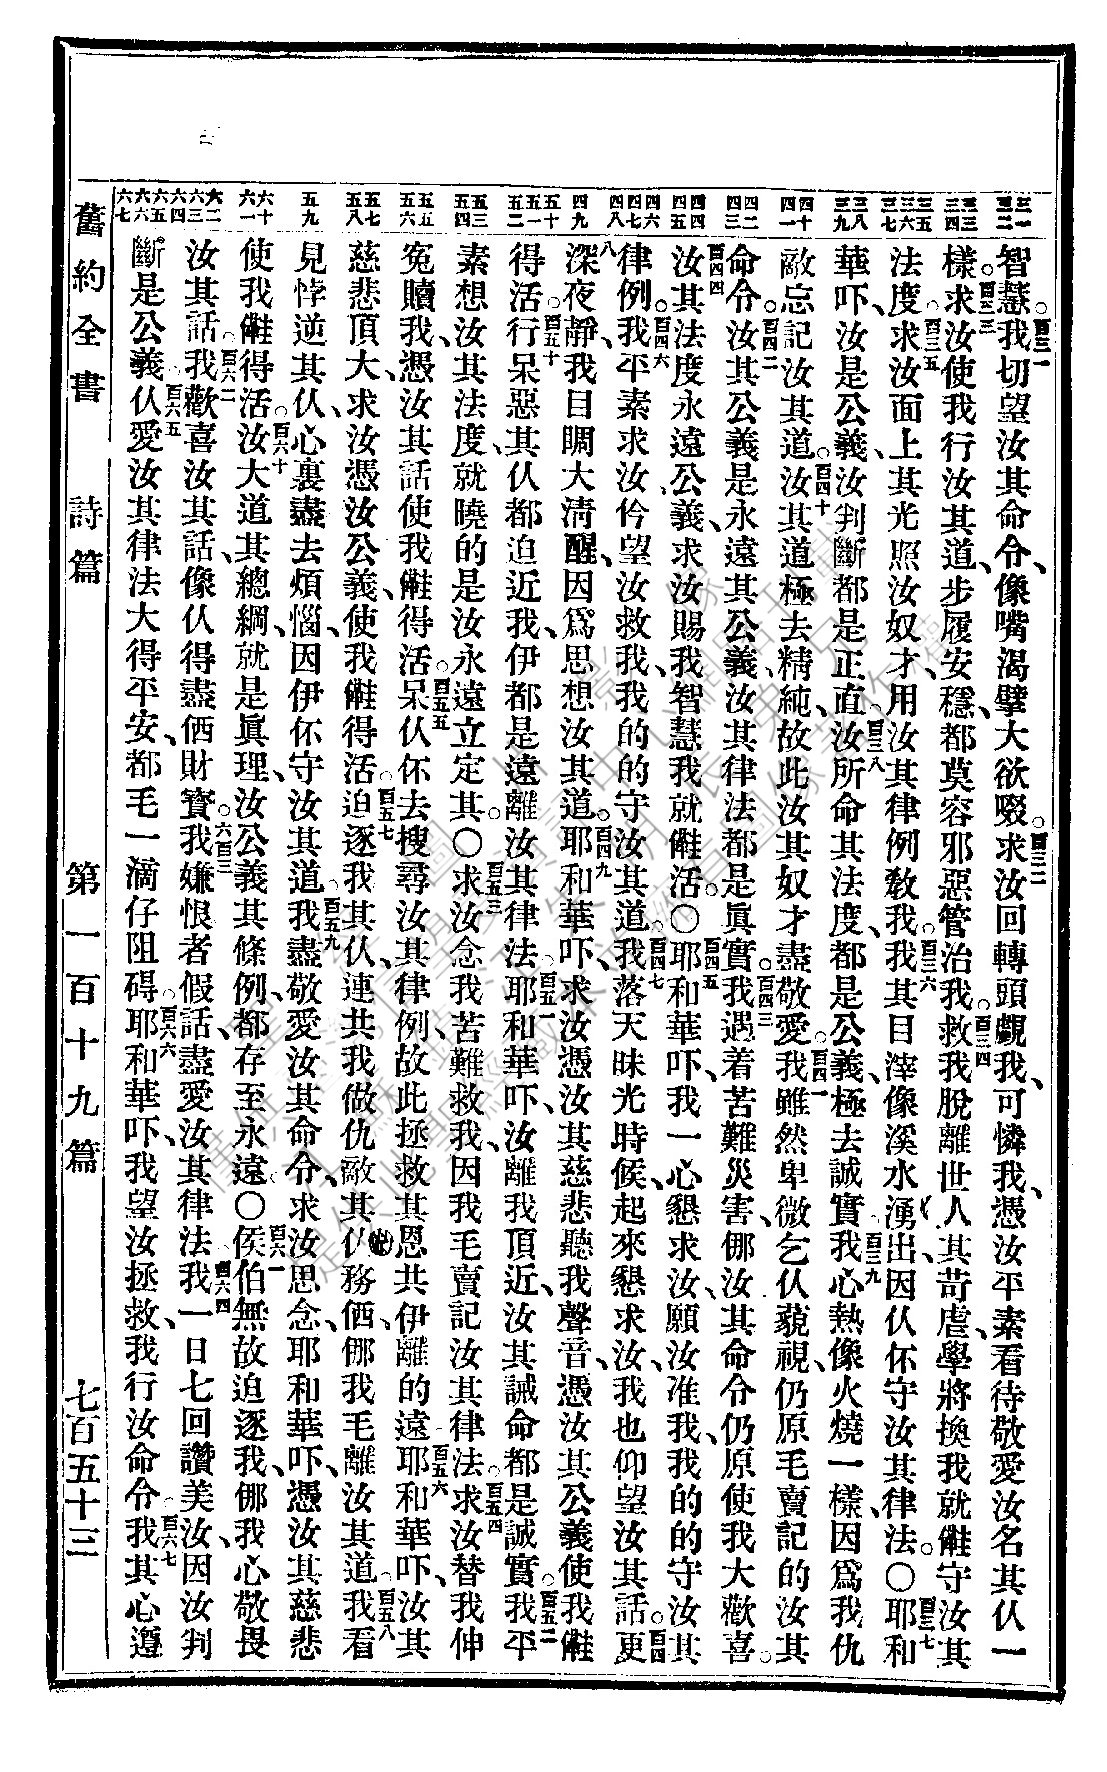 三一 三二 三三 三四 三五 三六 三七 三八 三九 四十 四一 四二 四三 四四 四五 四六 四七 四八 四九 五十 五一 五二 五三 五四 五五 五六 五七 五八 五九 六十 六一 六二 六三 六四 六五 六六 六七
智慧。百三一我切望汝其命令、像嘴渴擘大欲啜。百三二求汝回轉頭覷我、可憐我、憑汝平素看待敬愛汝名其仈一
樣。百三三求汝使我行汝其道、步履安穩、都莫容邪惡管治我。百三四救我脫離世人其苛虐、學將換我就㑚守汝其
法度。百三五求汝面上其光照汝奴才、用汝其律例教我。百三六我其目滓像溪水湧出、因仈伓守汝其律法。〇百三七耶和
華吓、汝是公義、汝判斷都是正直。百三八汝所命其法度、都是公義、極去誠實。百三九我心熱像火燒一樣、因為我仇
敵忘記汝其道。百四十汝其道極去精純、故此汝其奴才盡敬愛。百四一我雖然卑微、乞仈藐視、仍原毛賣記的汝其
命令。百四二汝其公義、是永遠其公義、汝其律法都是真實。百四三我遇着苦難災害、㑚汝其命令仍原使我大歡喜。
百四四汝其法度永遠公義、求汝賜我智慧、我就㑚活。〇百四五耶和華吓、我一心懇求汝、願汝准我、我的的守汝其
律例。百四六我平素求汝、伶望汝救我、我的的守汝其道。百四七我落天昧光時候、起來懇求汝、我也仰望汝其話。百四八更
深夜靜、我目睭大清醒、因為思想汝其道。百四九耶和華吓、求汝憑汝其慈悲、聽我聲音、憑汝其公義使我㑚
得活。百五十行呆惡其仈都迫近我、伊都是遠離汝其律法。百五一耶和華吓、汝離我頂近、汝其誡命都是誠實。百五二我平
素想汝其法度、就曉的是汝永遠立定其。〇百五三求汝念我苦難、救我、因我毛賣記汝其律法。百五四求汝替我伸
冤贖我、憑汝其話使我㑚得活。百五五呆仈伓去搜尋汝其律例、故此拯救其恩、共伊離的遠。百五六耶和華吓、汝其
慈悲頂大、求汝憑汝公義、使我㑚得活。百五七迫逐我其仈、連共我做仇敵其仈、務㑚、㑚我毛離汝其道。百五八我看
見悖逆其仈、心裏盡去煩惱、因伊伓守汝其道。百五九我盡敬愛汝其命令、求汝思念、耶和華吓、憑汝其慈悲
使我㑚得活。百六十汝大道其總綱、就是真理、汝公義其條例、都存至永遠。〇百六一侯伯無故迫逐我、㑚我心敬畏
汝其話。百六二我歡喜汝其話、像仈得盡㑚財寶。百六三我嫌恨者假話、盡愛汝其律法。百六四我一日七回讚美汝、因汝判
斷是公義。百六五仈愛汝其律法大得平安、都毛一滴仔阻碍。百六六耶和華吓、我望汝拯救、我行汝命令。百六七我其心遵
舊約全書 詩篇 第一百十九篇 七百五十三